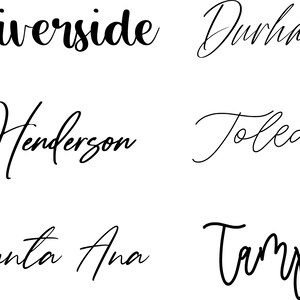 iverside Durha
Henderson Toled
nta Ana Tamp